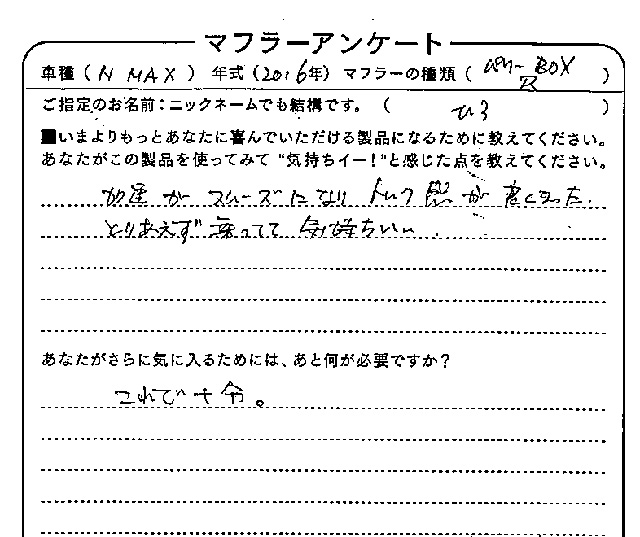 マフラーアンケート
車種（N MAX）年式（2016年）マフラーの種類（ BOX R）
ご指定のお名前：ニックネームでも結構です。（ ひろ ）
■いまよりもっとあなたに喜んでいただける製品になるために教えてください。
あなたがこの製品を使ってみて"気持ちイー！"と感じた点を教えてください。
加速がスムーズになり トルク感が良くなった.
とりあえず乗ってて気持ちいい.
あなたがさらに気に入るためには、あと何が必要ですか？
これで十分。